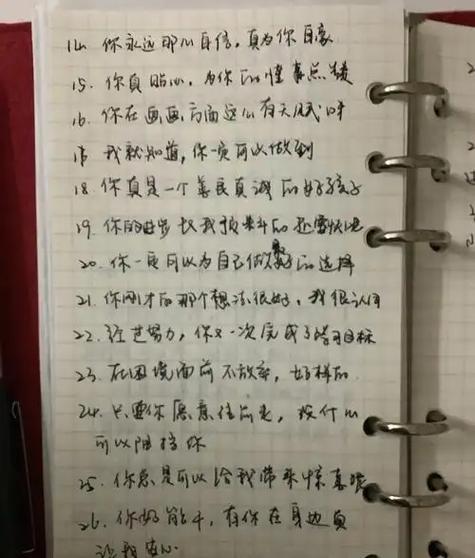 14. 你永远那么自信，真为你自豪
15. 你真贴心，为你的懂事点赞
16. 你在画画方面这么有天赋呀
17 我就知道，你一定可以做到
18. 你真是一个善良真诚的好孩子
19. 你的进步比我预料的还要快呢
20. 你一定可以为自己做最好的选择
21. 你刚才的那个想法很好，我很认同
22. 经过努力，你又一次完成了学习目标
23. 在困境面前不放弃，好样的
24. 只要你愿意往前走，没什么
可以阻挡你
25. 你总是可以给我带来惊喜呢
26. 你好能干，有你在身边真
让我安心